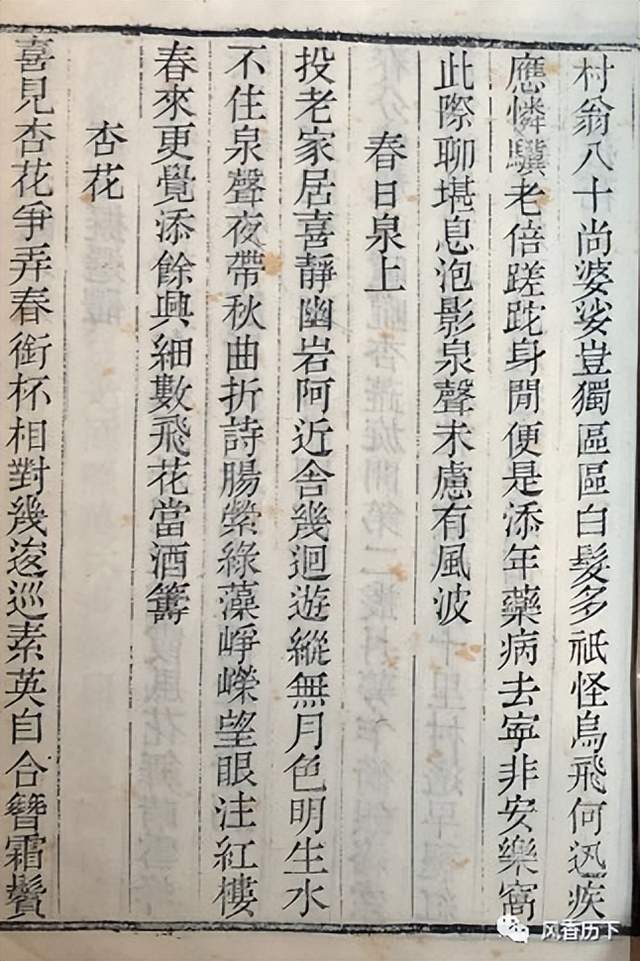 村翁八十尚婆娑豈獨區區白髮多祇怪鳥飛何迅疾
應憐驥老倍蹉跎身閒便是添年藥病去寧非安樂窩
此際聊堪息泡影泉聲未慮有風波
春日泉上
投老家居喜靜幽岩阿近舍幾迴遊縱無月色明生水
不住泉聲夜帶秋曲折詩腸縈綠藻崢嶸望眼注紅樓
春來更覺添餘興細數飛花當酒籌
杏花
喜見杏花爭弄春銜杯相對幾逡巡素英自合簪霜鬢
风香历下